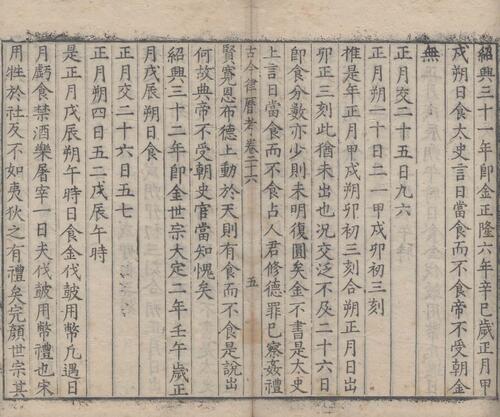 紹興三十一年即金正隆六年辛巳歲正月甲
戌朔日食太史言日當食而不食帝不受朝金
無
正月交二十五日九六
正月朔一十日二一甲戌卯初三刻
惟是年正月甲戌朔卯初三刻合朔正月日出
卯正三刻此猶未出也況交泛不及二十六日
即食分數亦少則未明復圓矣金不書是太史
上言日當食而不食占人君修德罪已察姦禮
古今律曆考卷二十六
五
賢賚恩布德上動於天則有食而不食是說出
何故典帝不受朝史官當知愧矣
紹興三十二年即金世宗大定二年壬午歲正
月戊辰朔日食
正月交二十六日五七
正月朔四日五二戊辰午時
是正月戊辰朔午時日食金伐鼓用幣凡遇日
月虧食禁酒樂屠宰一日夫伐鼓用幣禮也宋
用牲於社反不如夷狄之有禮矣完顏世宗其